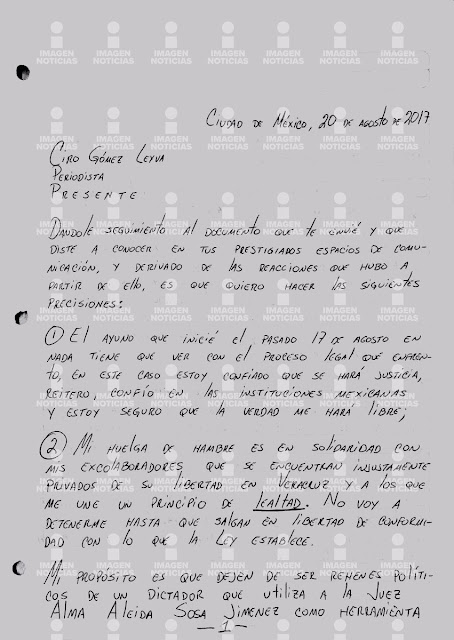 Ciudad de México, 20 de agosto de 2017
Ciro Gómez Leyva
Periodista
Presente
Dandole seguimiento al documento que te envié y que
diste a conocer en tus prestigiados espacios de comu-
nicación, y derivado de las reacciones que hubo a
partir de ello, es que quiero hacer las siguientes
precisiones:
1 El ayuno que inicié el pasado 17 de agosto en
nada tiene que ver con el proceso legal que enfren-
to, en este caso estoy confiado que se hará justicia,
reitero, confío en las instituciones mexicanas
y estoy seguro que la verdad me hará libre;
2 Mi huelga de hambre es en solidaridad con
mis excolaboradores que se encuentran injustamente
privados de su libertad en Veracruz y a los que
me une un principio de lealtad. No voy a
detenerme hasta que salgan en libertad de conformi-
dad con lo que la Ley establece.
Mi propósito es que dejen de ser rehenes políti-
cos de un dictador que utiliza a la Juez
Alma Aleida Sosa Jimenez como herramienta
— 1 —
IMAGEN NOTICIAS